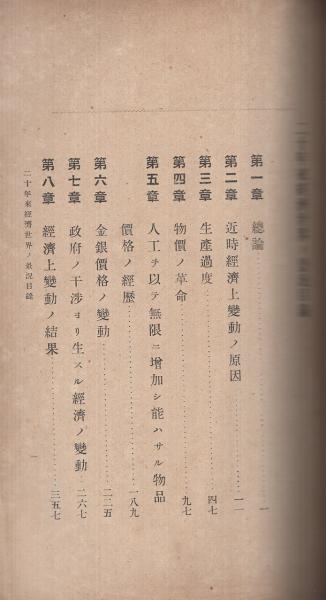 第一章 總論 一
第二章 近時經濟上變動ノ原因 一一
第三章 生產過度 四七
第四章 物價ノ革命 九七
第五章 人工チ以テ無限ニ增加シ能ハサル物品
價格ノ經歷 一八九
第六章 金銀價格ノ變動 二二五
第七章 政府ノ干涉ヨリ生スル經濟ノ變動 二六七
第八章 經濟上變動ノ結果 三五七
二十年來經濟世界ノ景況目錄